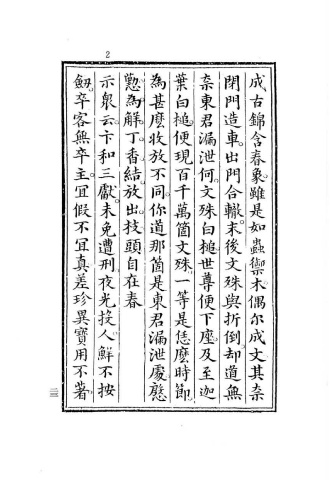 2
成古錦含春象雖是如蟲禦木偶尔成文其奈
閉門造車出門合轍末後文殊與折倒却道無
奈東君漏泄何文殊白槌世尊便下座及至迦
葉白槌便現百千萬箇文殊一等是恁麽時節
為甚麽收放不同你道那箇是東君漏泄處慇
懃為解丁香結放出枝頭自在春
示衆云卞和三獻未免遭刑夜光投人鮮不按
劒卒客無卒主冝假不冝真差珍異寶用不著